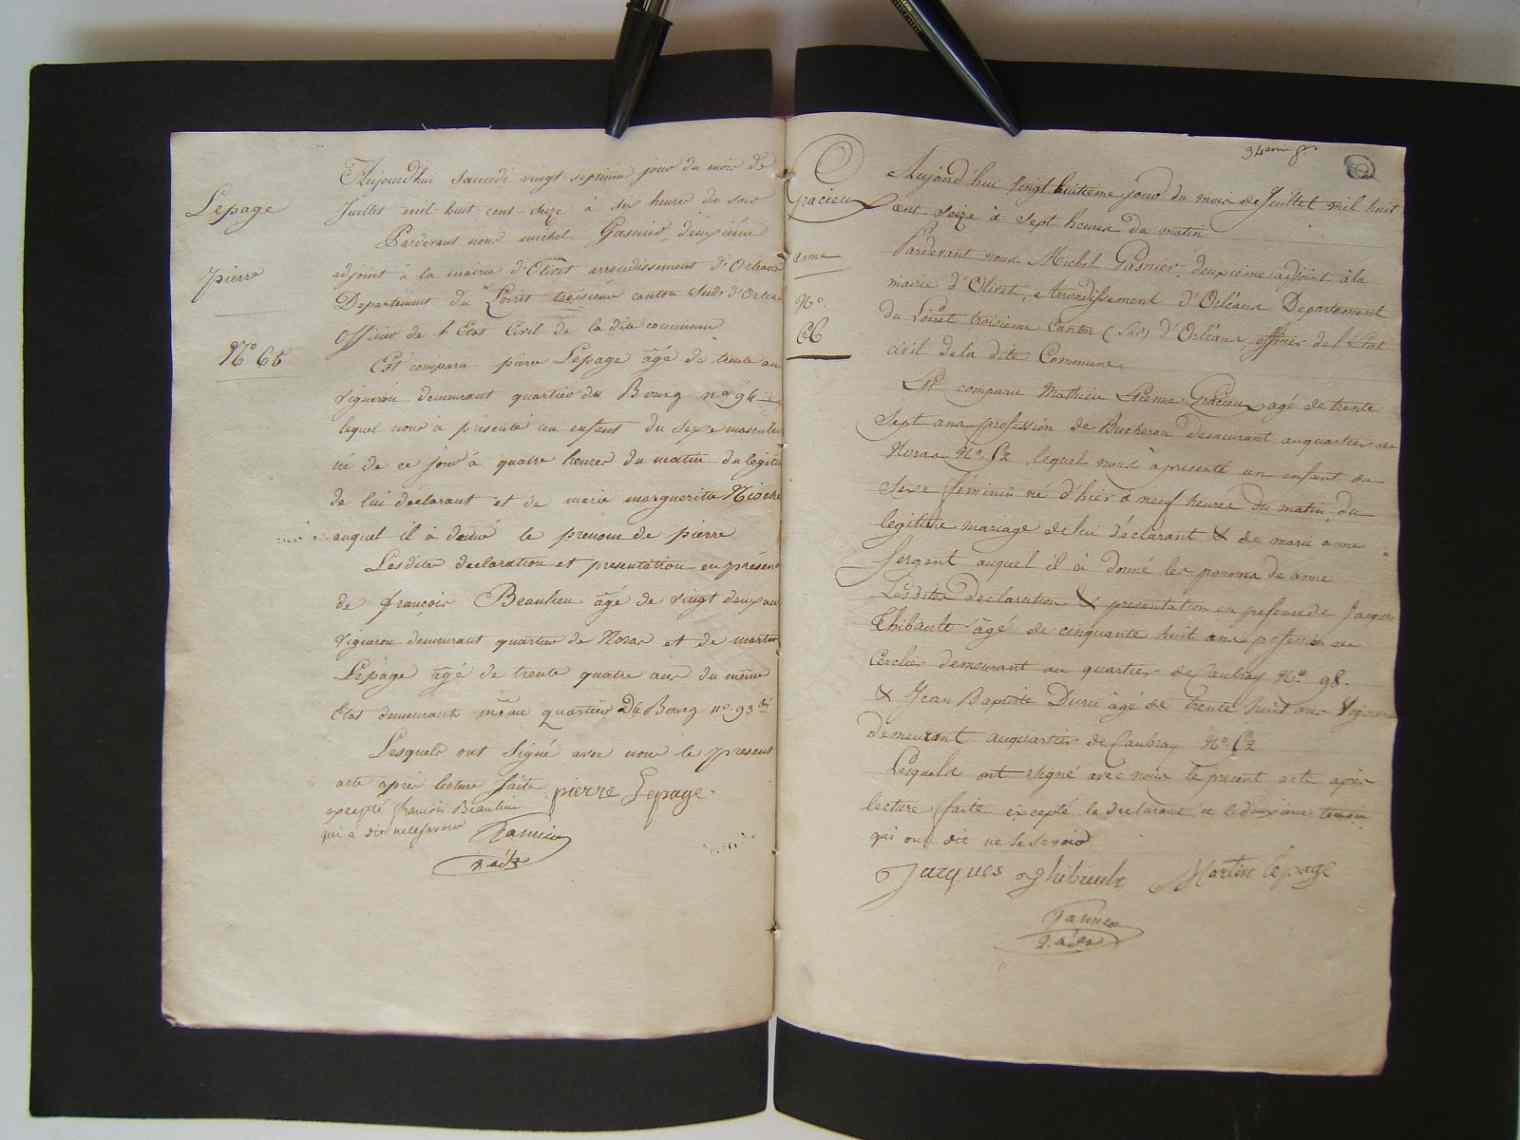 Lepage
pierre
N° 65
Aujourd'hui Samedi vingt septieme jour du mois de
Juillet mil huit cent seize à six heures du soir
Pardevant nous michel Gasnier deuxieme
adjoint à la mairie d'Olivet arrondissement d'Orleans
Departement du Loiret troisieme canton Sud d'Orleans
Officier de l'Etat Civil de la dite commune
Est comparu pierre Lepage âgé de trente an
vigneron demeurant quartier du Bourg n° 94
lequel nous à présenté un enfant du Sexe masculin
né de ce jour à quatre heures du matin du legiti
de lui déclarant et de marie margueritte Rioche
auquel il à donné le prenom de pierre
Lesdite declaration et presentation en présen
de françois Beaulieu âgé de vingt deux an
vigneron demeurant quartier de Noras et de martin
Lepage âgé de trente quatre ans du même
état demeurant même quartier Du Bourg n° 93
Lesquels ont Signé avec nous le present
acte après lecture faite pierre Lepage
excepté francois Beaulieu
qui a dit ne le savoir
34
Gracieu
anne
N°
66
Aujourd'hui vingt huitieme jour du mois de Juillet mil huit
cent seize à sept heures du matin
Pardevant nous Michel Gasnier, deuxieme adjoint à la
mairie d'Olivet, Arrondissement d'Orléans Departement
du Loiret troisieme Canton (Sud) d'Orléans officier de l'Etat
civil de la dite Commune
Est comparu Mathieu Etienne Gracieu agé de trente
Sept ans profession de Bucheron demeurant au quartier de
Noras N° 52 lequel nous à presenté un enfant du
Sexe féminin né d'hier à neuf heures du matin du
légitime mariage de lui déclarant & de marie anne
Sergent auquel il à donné les prenoms de anne
Lesdites declaration & presentation en presence de Jacques
Thibault âgé de cinquante huit ans profession de
Cerclier demeurant au quartier de Caubray N° 98.
& Jean Baptiste Durié âgé de trente huit ans Vigneron
demeurant au quartier de Caubray N° 52
Lesquels ont signé avec nous le présent acte après
lecture faite excepté le declarant et le deuxième temoin
qui ont dit ne le savoir
Jacques Thibault Martin lepage